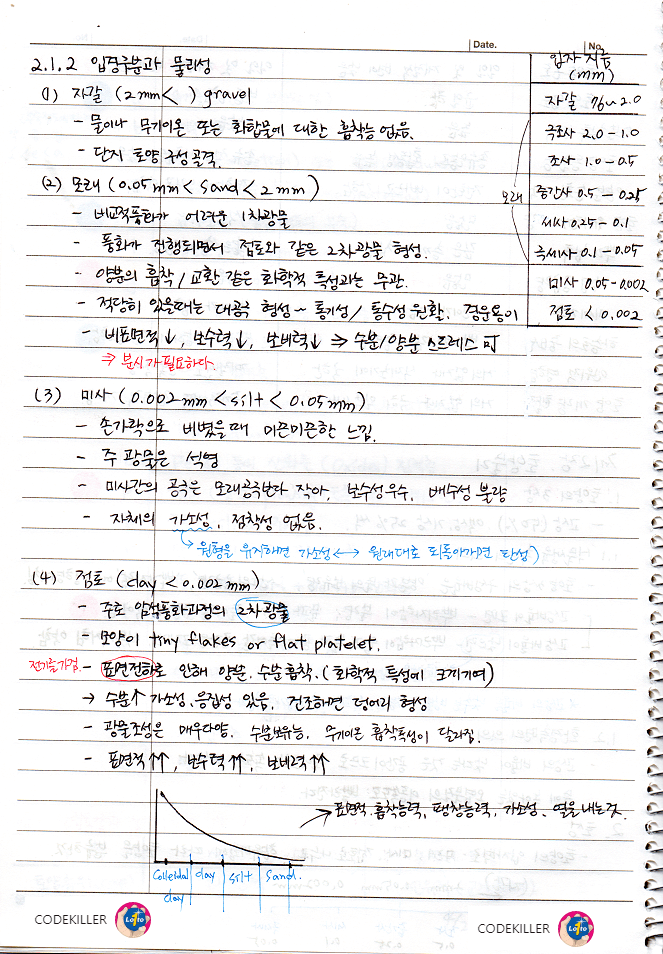 Date.
No.
2.1.2 입경구분과 물리성
(1) 자갈 (2mm< ) gravel
- 물이나 무기이온 또는 화합물에 대한 흡착능 없음.
- 단지 토양 구성골격.
(2) 모래 (0.05mm < sand < 2mm)
- 비교적풍화가 어려운 1차광물
- 풍화가 진행되면서 점토와 같은 2차광물 형성.
- 양분의 흡착/교환 같은 화학적 특성과는 무관.
- 적당히 있을때는 대공극 형성 ~ 통기성/통수성 원활. 경운용이
- 비표면적↓, 보수력↓, 보비력↓ ⇒ 수분/양분 스트레스 可
⇒ 분시가 필요하다.
입자 지름
(mm)
자갈 76~2.0
모래
극조사 2.0-1.0
조사 1.0-0.5
중간사 0.5-0.25
세사 0.25-0.1
극세사 0.1-0.05
미사 0.05-0.002
점토 < 0.002
(3) 미사 (0.002mm < silt < 0.05mm)
- 손가락으로 비볐을때 미끈미끈한 느낌.
- 주 광물은 석영
- 미사간의 공극은 모래공극보다 작아, 보수성우수, 배수성 불량
- 자체의 가소성, 점착성 없음.
원형을 유지하면 가소성 ↔ 원래대로 되돌아가면 탄성)
(4) 점토 (clay < 0.002mm)
- 주로 암석풍화과정의 2차광물
- 모양이 tiny flakes or flat platelet.
전기를가짐.
- 표면전하로 인해 양분·수분흡착. (화학적 특성에 크게기여)
→ 수분↑ 가소성, 응집성 있음, 건조하면 덩어리 형성
- 광물조성은 매우다양, 수분보유능, 무기이온 흡착특성이 달라짐.
- 표면적↑↑, 보수력↑↑, 보비력↑↑
표면적, 흡착능력, 팽창능력, 가소성, 열을내는것.
Colloidal clay
clay
silt
Sand.
CODEKILLER
Lotto
CODEKILLER
Lotto